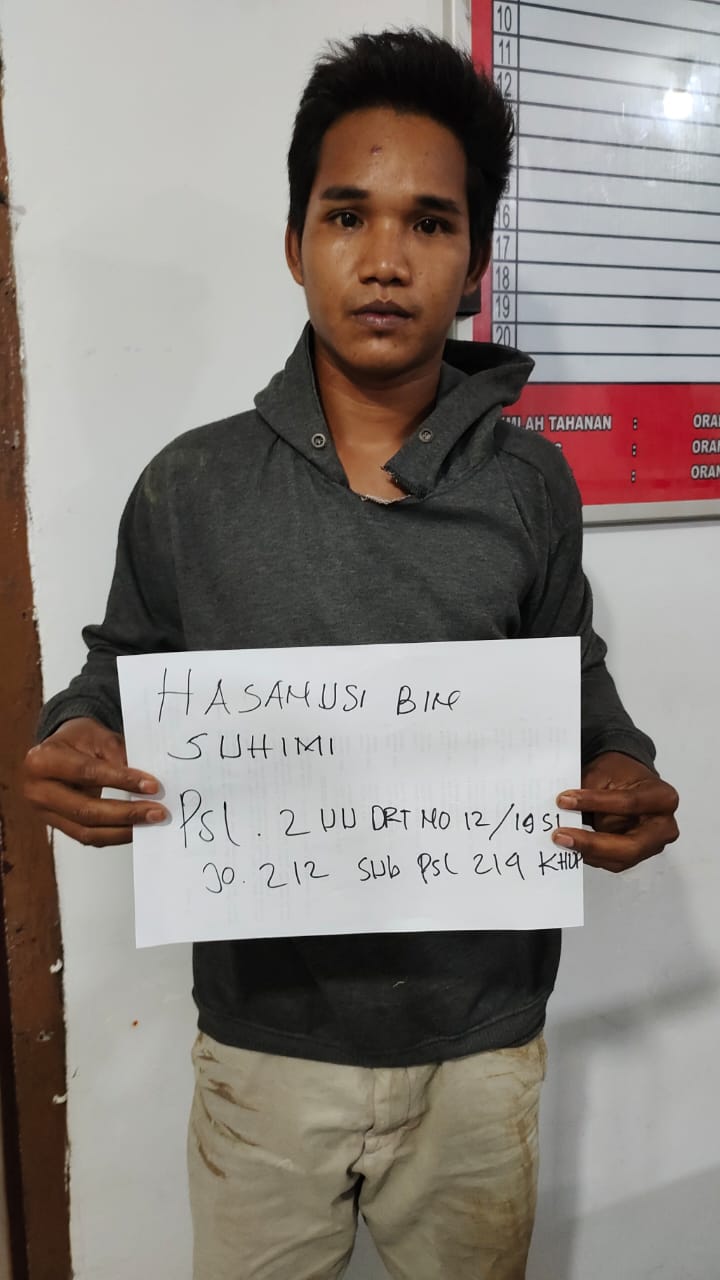 10
11
12
16
17
18
19
20
MLAH TAHANAN : ORA
: ORA
: ORA
HASANUSI BIN
SUHIMI
Psl. 2 UU DRT NO 12/1951
JO. 212 sub Psl 219 KHUP